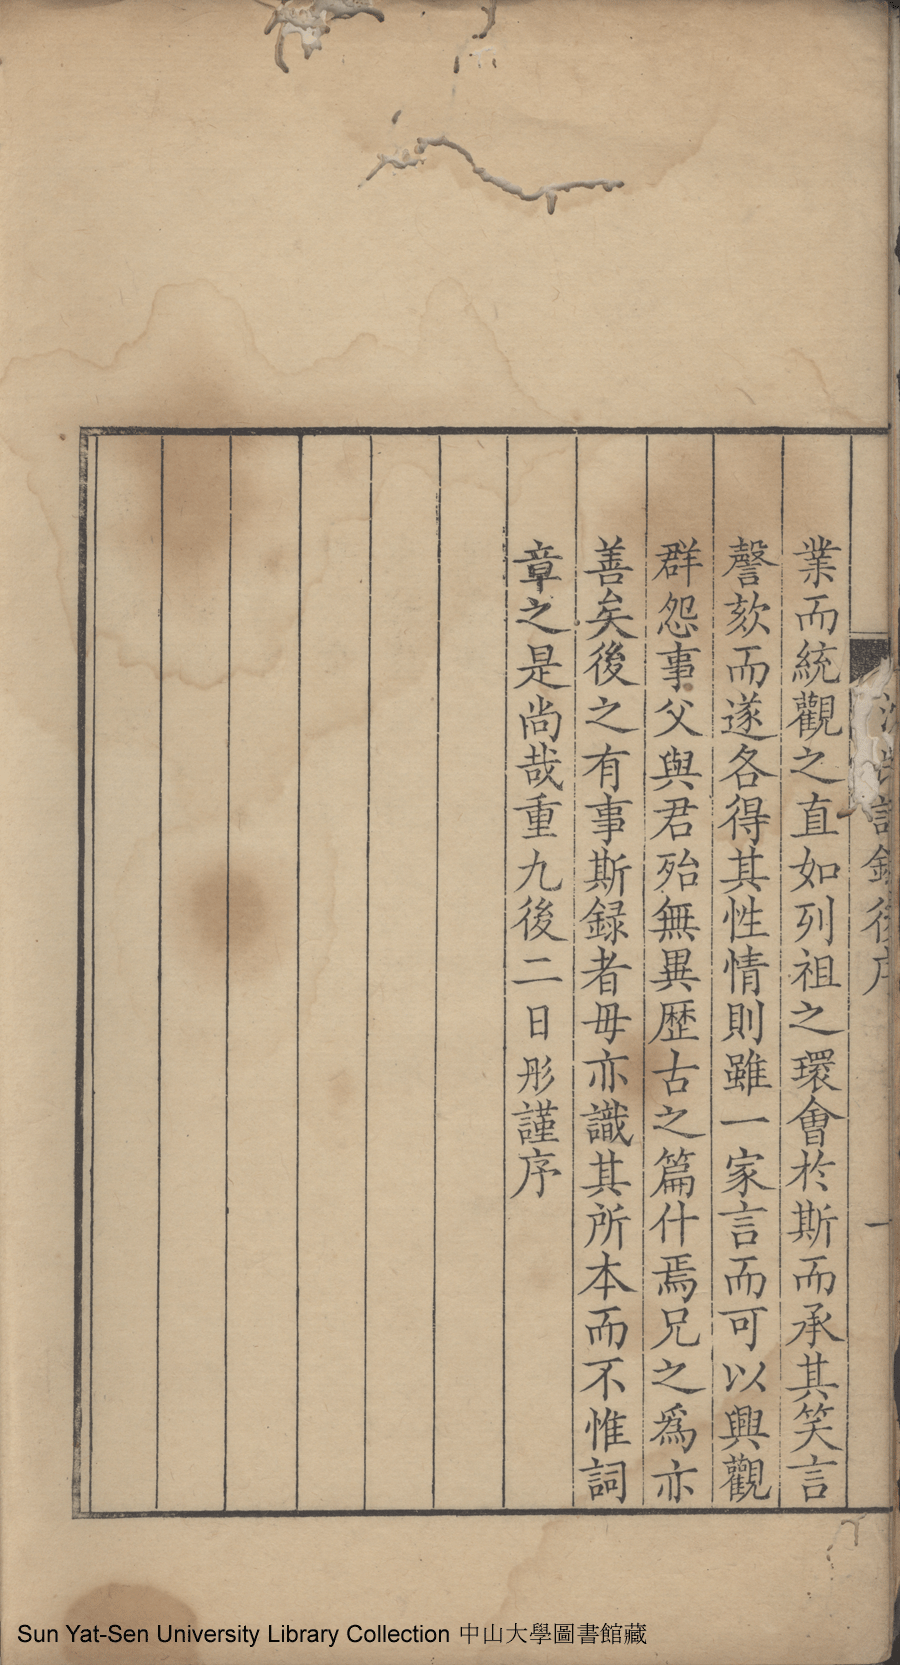 業而統觀之直如列祖之環會於斯而承其笑言
謦欬而遂各得其性情則雖一家言而可以興觀
群怨事父與君殆無異歷古之篇什焉兄之爲亦
善矣後之有事斯録者毋亦識其所本而不惟詞
章之是尚哉重九後二日彤謹序
詩録後序
一
Sun Yat-Sen University Library Collection 中山大學圖書館藏